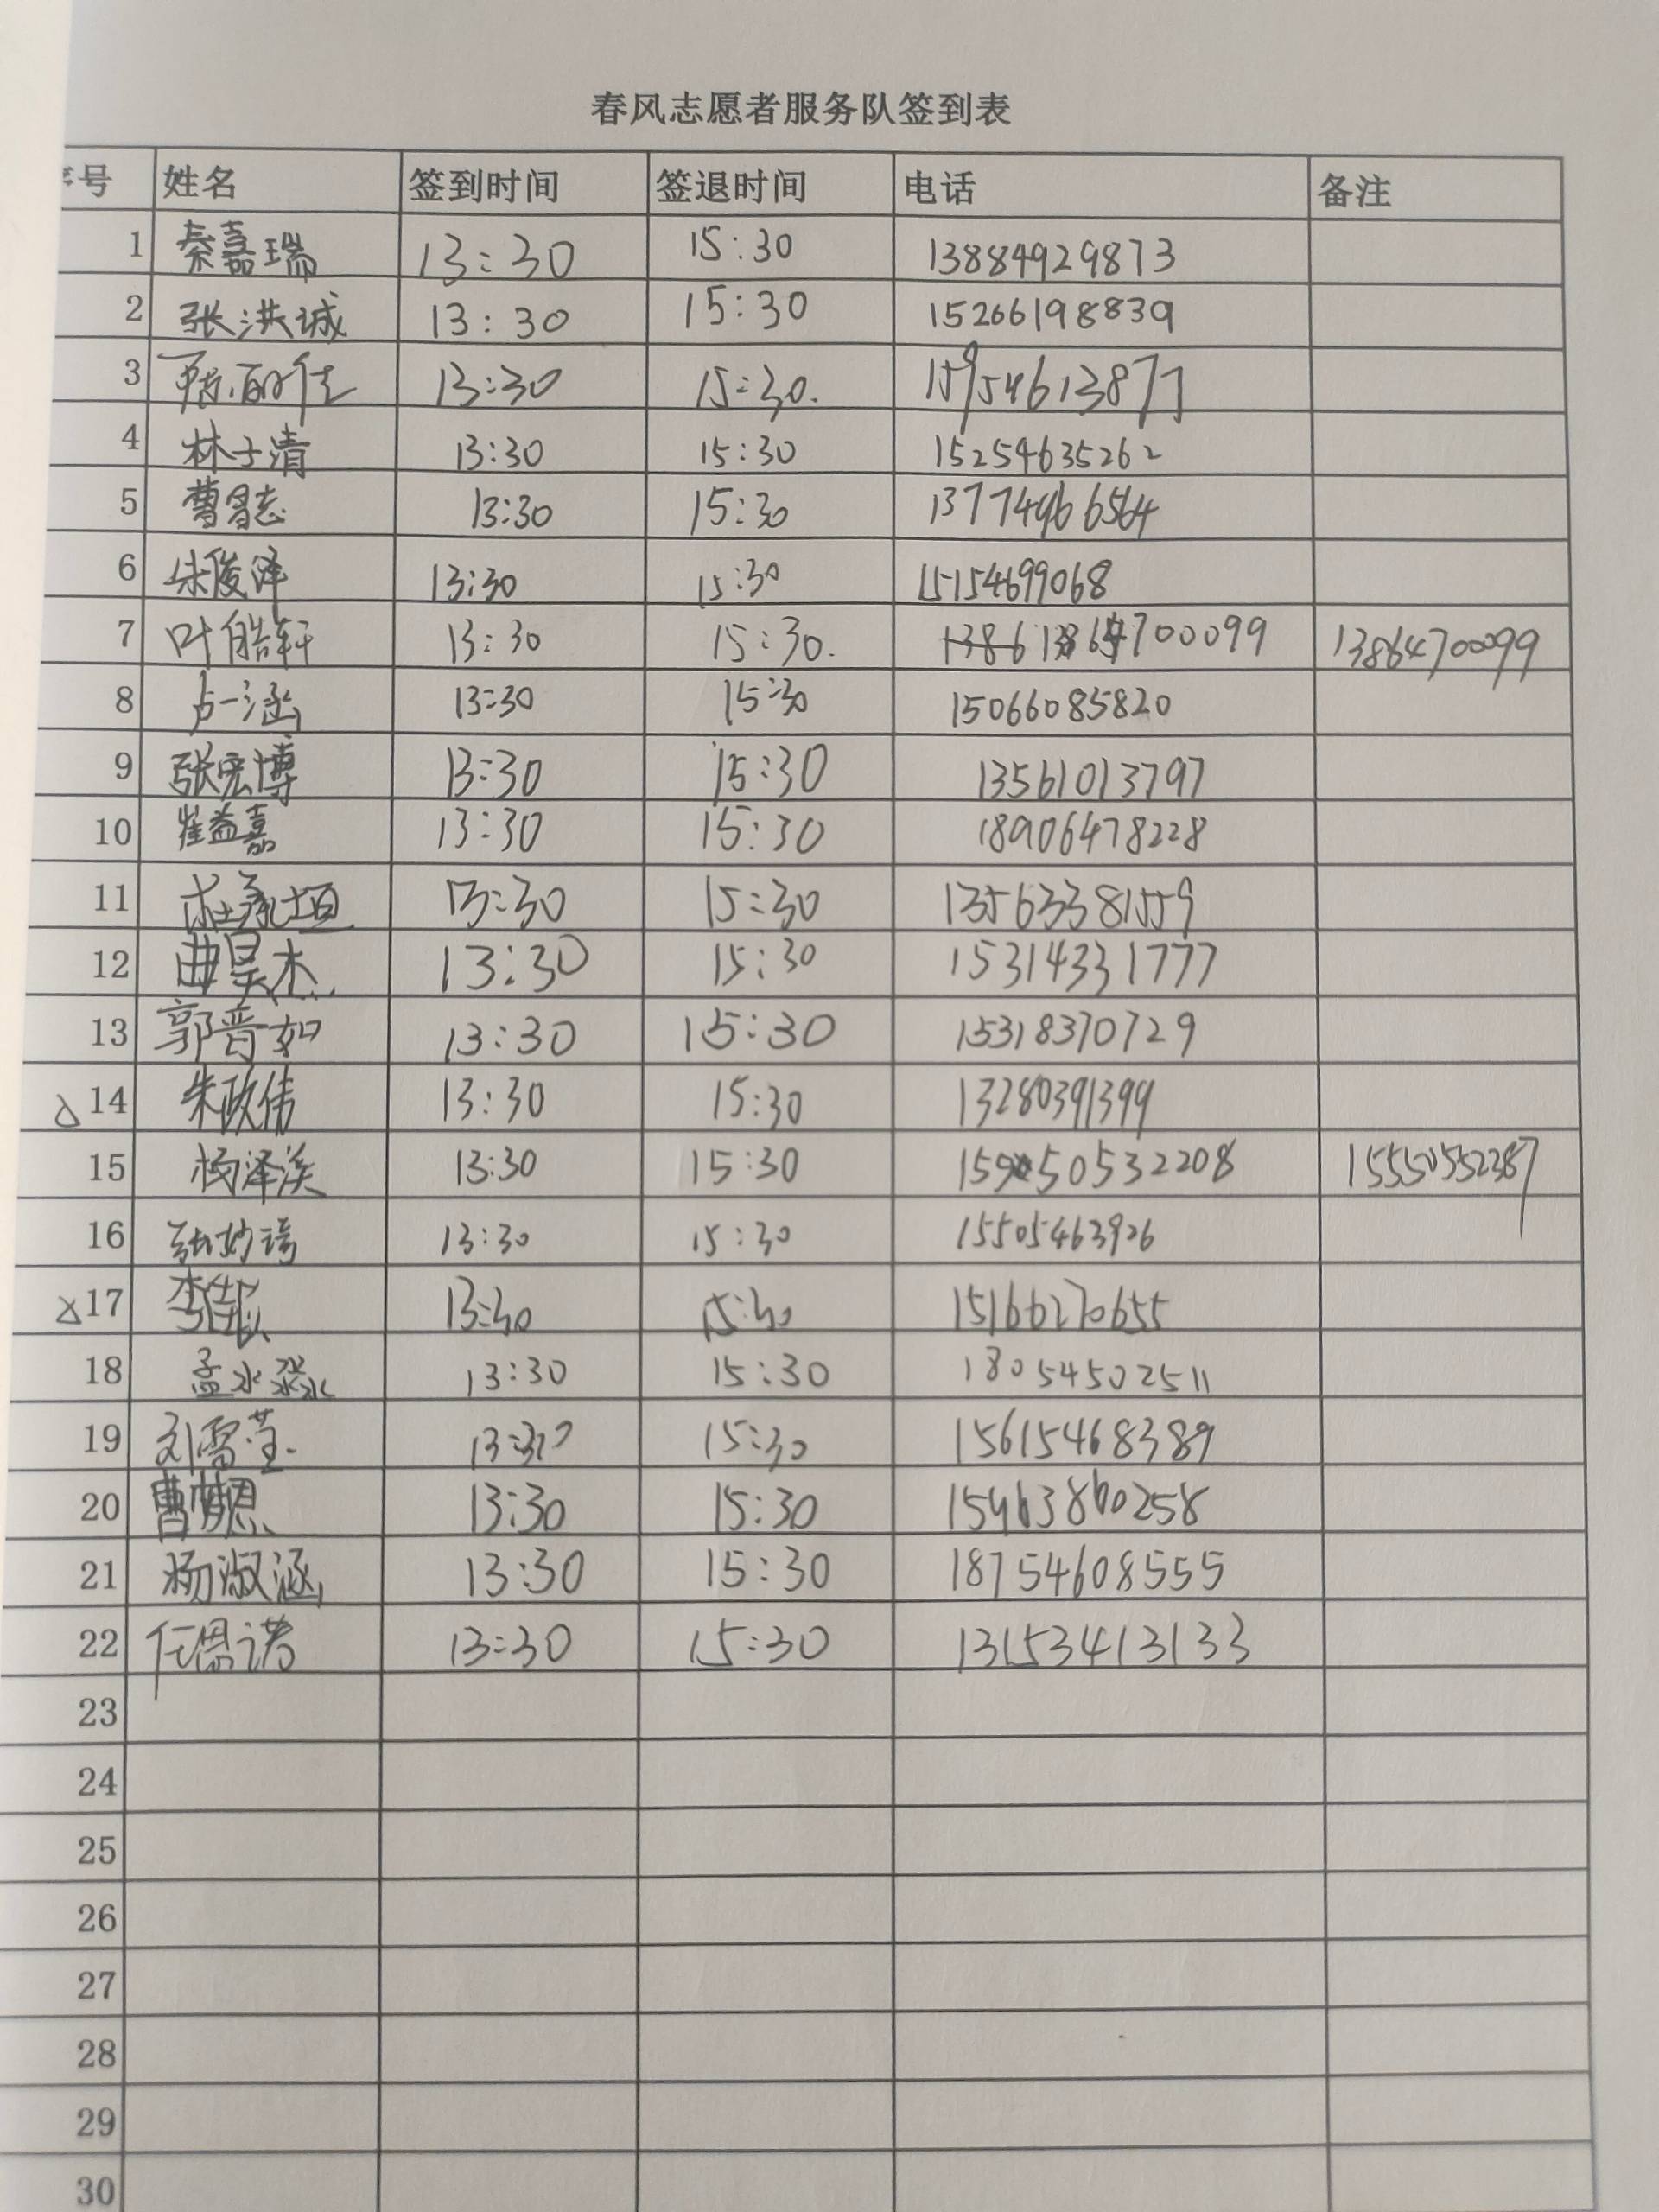 春风志愿者服务队签到表
序号 姓名 签到时间 签退时间 电话 备注
1 秦嘉瑞 13:30 15:30 13884929873
2 张洪诚 13:30 15:30 15266198839
3 13:30 15:30. 15954613877
4 林子清 13:30 15:30 15254635262
5 曹曾志 13:30 15:30 13774966564
6 朱俊泽 13:30 15:30 15154699068
7 叶皓轩 13:30 15:30. 700099 13864700099
8 卢一涵 13:30 15:30 15066085820
9 张宏博 13:30 15:30 13561013797
10 崔益嘉 13:30 15:30 18906478228
11 杜承垣 13:30 15:30 13563381559
12 曲昊杰 13:30 15:30 15314331777
13 郭晋如 13:30 15:30 15318370729
14 朱政伟 13:30 15:30 13280391399
15 杨泽溪 13:30 15:30 50532208 15550552387
16 张妙琦 13:30 15:30 15505463926
17 李 13:30 15:30 15166270655
18 孟水淼 13:30 15:30 18054502511
19 刘雪莹. 13:30 15:30 15615468389
20 曹 13:30 15:30 15463860258
21 杨淑涵 13:30 15:30 18754608555
22 任恩诺 13:30 15:30 13153413133
23
24
25
26
27
28
29
30